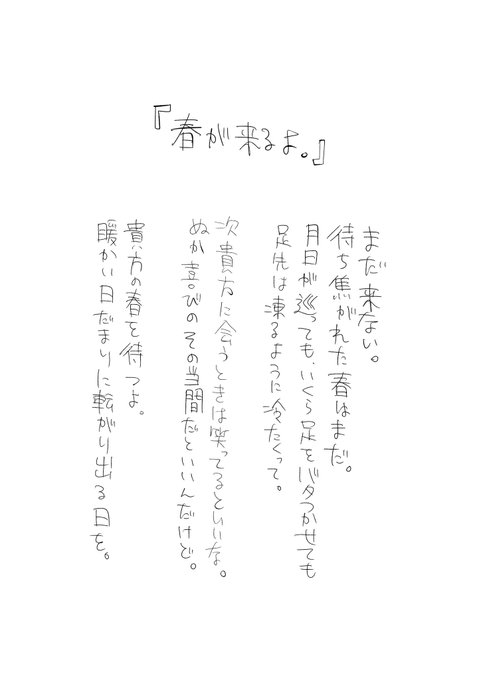 『春が来るよ。』
まだ来ない。
待ち焦がれた春はまだ。
月日が巡っても、いくら足をバタつかせても
足先は凍るように冷たくって。
次貴方に会うときは笑ってるといいな。
ぬか喜びのその当間だといいんだけど。
貴方の春を待つよ。
暖かい日だまりに転がり出る日を。